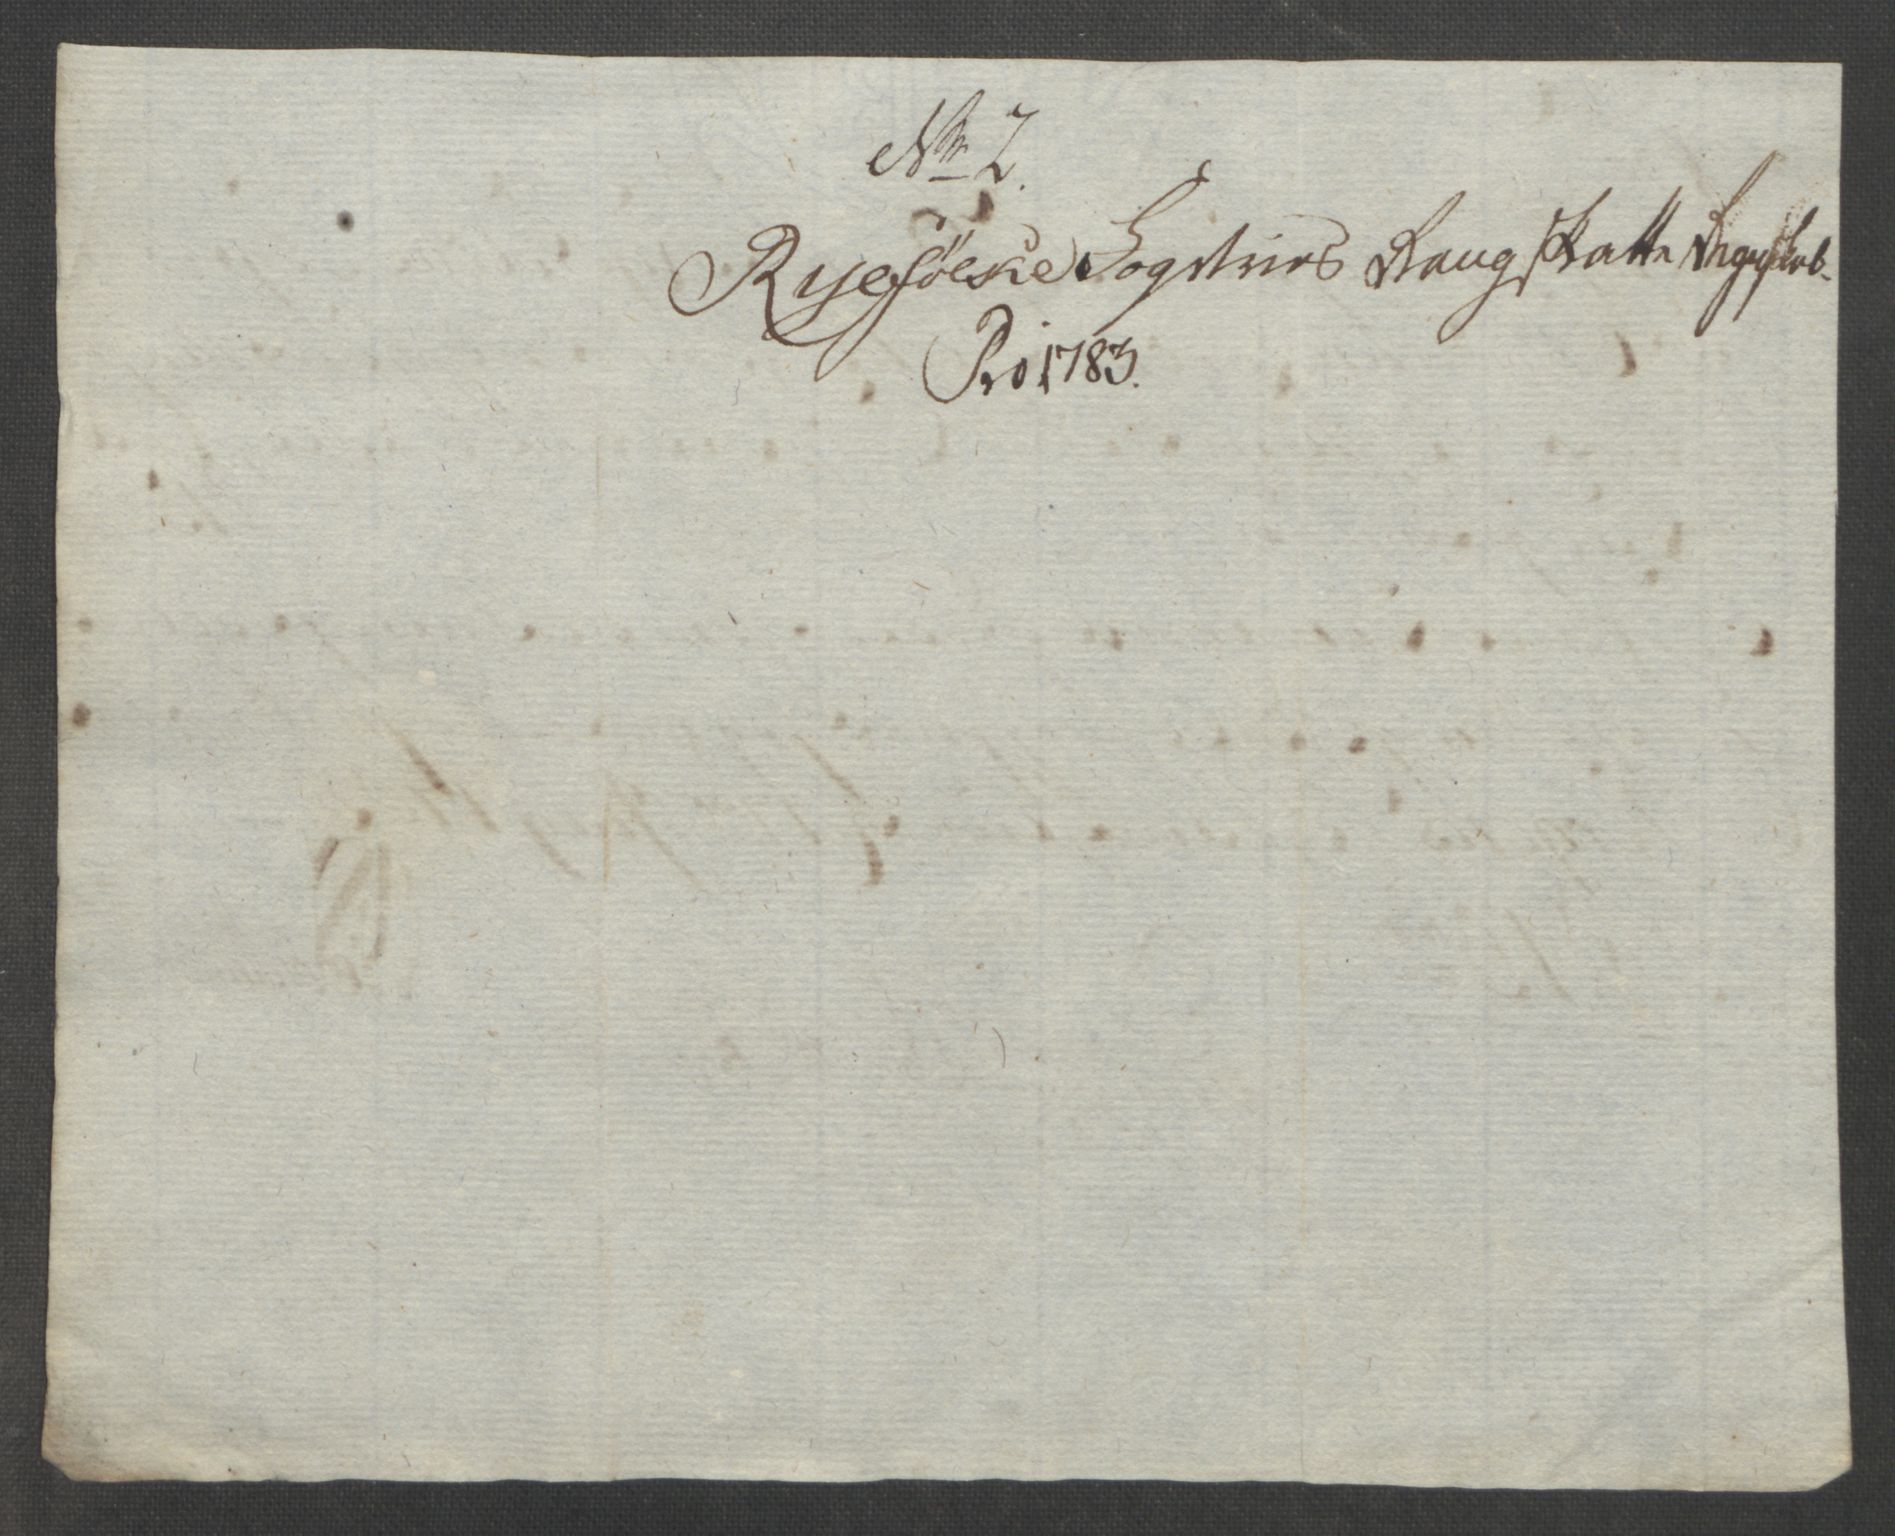 No 2.
Ryefölske Fogderies Rang Skatte Regnskab
Pro 1783.